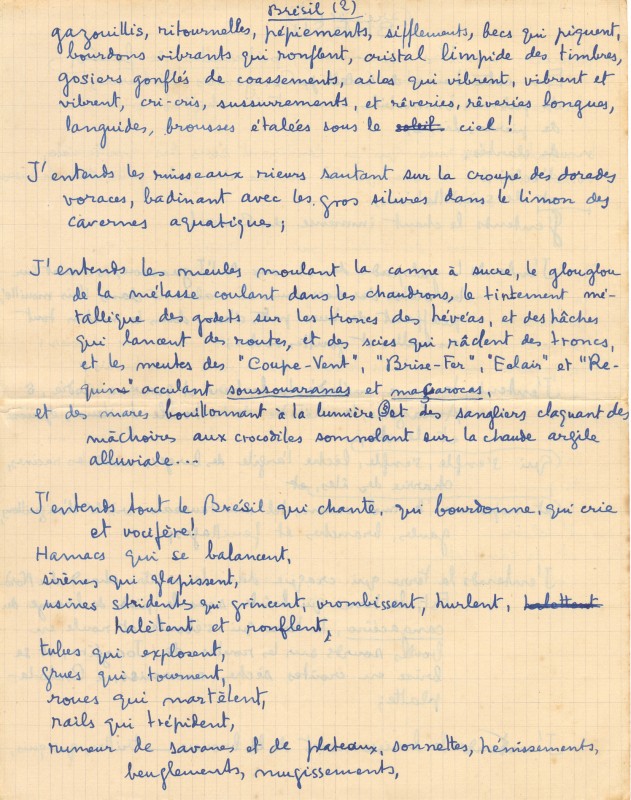 Brésil (2)
gazouillis, ritournelles, pépiements, sifflements, becs qui piquent,
bourdons vibrants qui ronflent, cristal limpide des timbres,
gosiers gonflés de coassements, ailes qui vibrent, vibrent et
vibrent, cri-cris, sussurrements, et rêveries, rêveries longues,
languides, brousses étalées sous le soleil ciel !
J'entends les ruisseaux rieurs sautant sur la croupe des dorades
voraces, badinant avec les gros silures dans le limon des
cavernes aquatiques ;
J'entends les meules moulant la canne à sucre, le glouglou
de la mélasse coulant dans les chaudrons, le tintement mé-
tallique des godets sur les troncs des hévéas, et des hâches
qui lancent des routes, et des scies qui râclent des troncs,
et les meutes des "Coupe-Vent", "Brise-Fer", "Eclair" et "Re-
quins" acculant soussouaranas et maçarocas,
et des mares bouillonnant à la lumière et des sangliers claquant des
mâchoires aux crocodiles somnolant sur la chaude argile
alluviale...
J'entends tout le Brésil qui chante, qui bourdonne, qui crie
et vocifère !
Hamacs qui se balancent,
sirènes qui glapissent,
usines stridentes qui grincent, vrombissent, hurlent, halettent
halètent et ronflent,
tubes qui explosent,
grues qui tournent,
roues qui martèlent,
rails qui trépident,
rumeur de savanes et de plateaux, sonnettes, hénissements,
beuglements, mugissements,